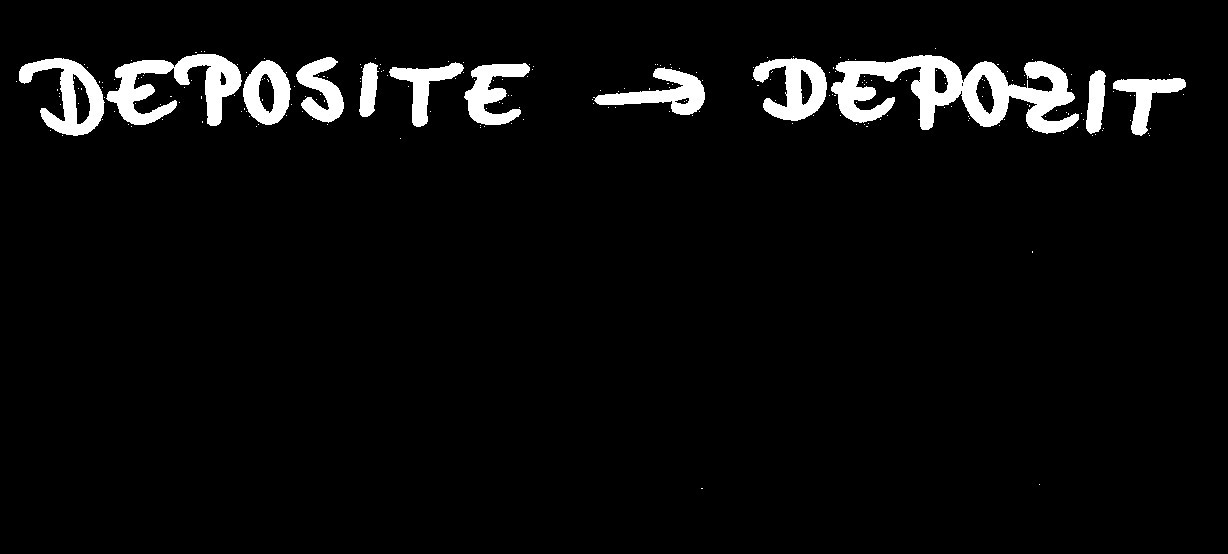 DEPOSITE → DEPOZIT